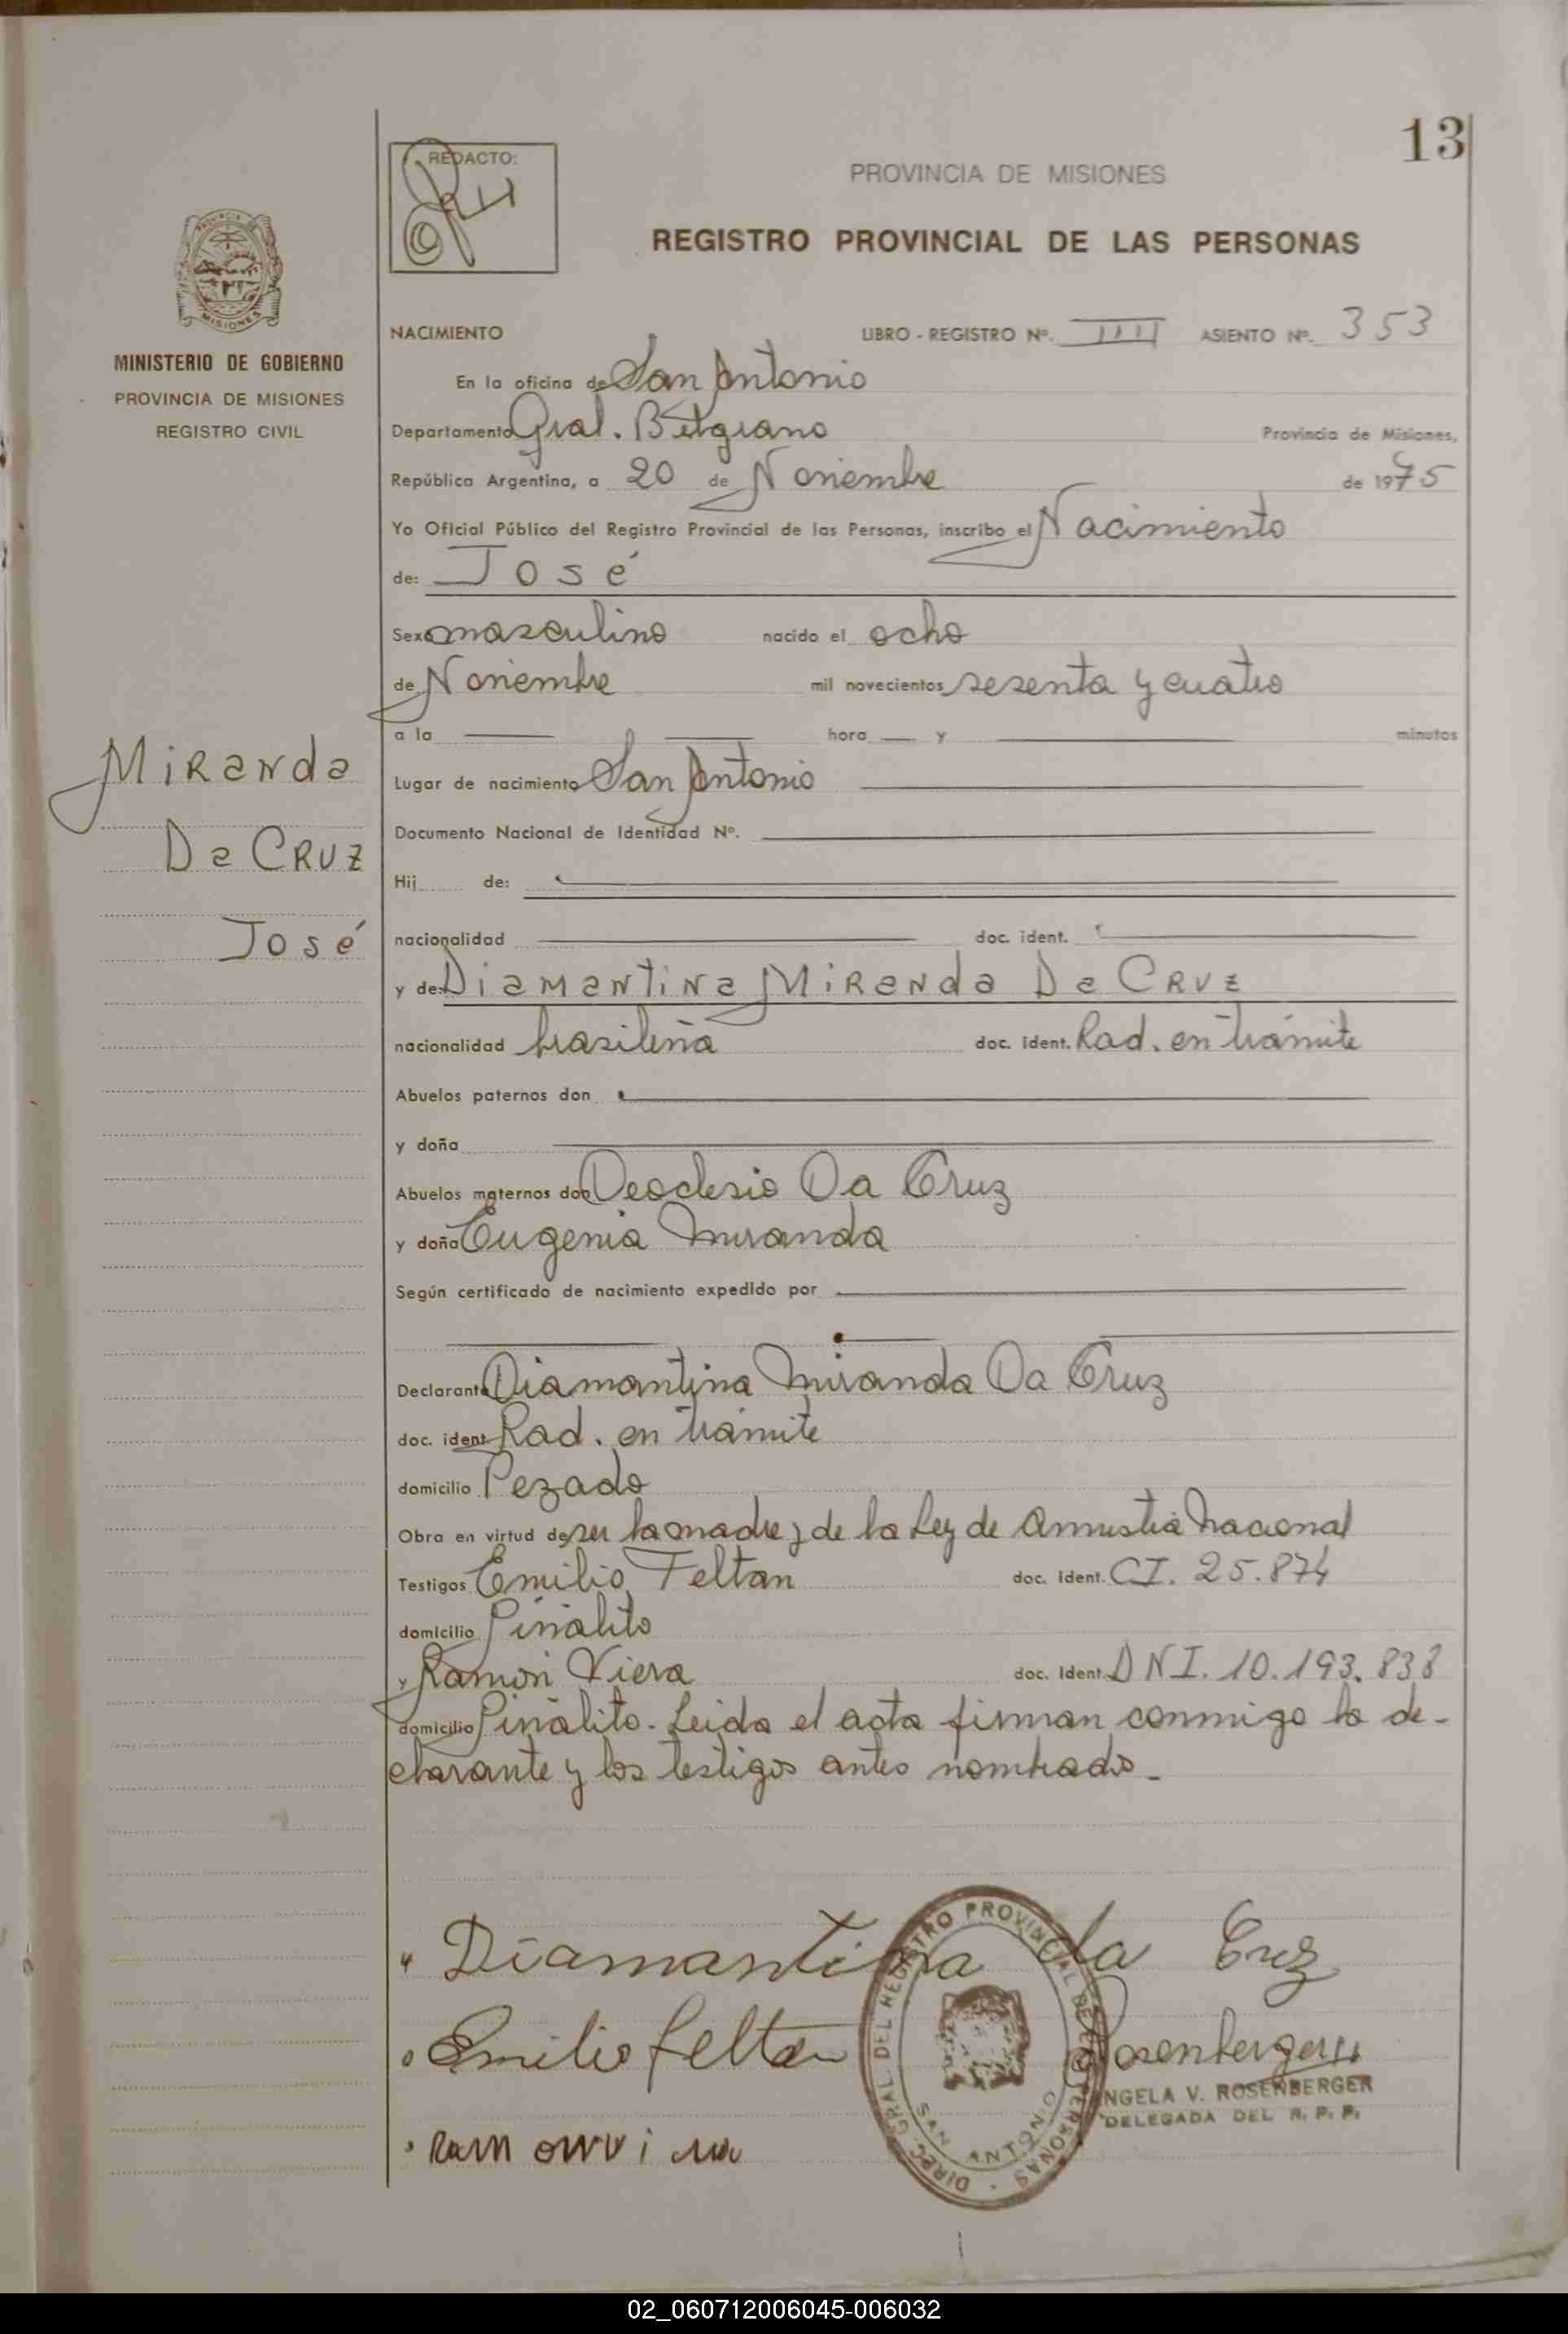 13
REDACTO:
PROVINCIA DE MISIONES
REGISTRO PROVINCIAL DE LAS PERSONAS
PROVINCIA
MISIONES
MINISTERIO DE GOBIERNO
PROVINCIA DE MISIONES
REGISTRO CIVIL
NACIMIENTO LIBRO - REGISTRO Nº. IIII ASIENTO Nº. 353
En la oficina de San Antonio
Departamento Gral. Belgrano Provincia de Misiones,
República Argentina, a 20 de Noviembre de 1975
Yo Oficial Público del Registro Provincial de las Personas, inscribo el Nacimiento
de: José
Sexo masculino nacido el ocho
de Noviembre mil novecientos sesenta y cuatro
a la hora y minutos
Miranda
Da Cruz
José
Lugar de nacimiento San Antonio
Documento Nacional de Identidad Nº.
Hij de:
nacionalidad doc. ident.
y de: Diamantina Miranda Da Cruz
nacionalidad brasileña doc. ident. Rad. en trámite
Abuelos paternos don
y doña
Abuelos maternos don Deoclesio Da Cruz
y doña Eugenia Miranda
Según certificado de nacimiento expedido por
Declarante Diamantina Miranda Da Cruz
doc. ident. Rad. en trámite
domicilio Pezado
Obra en virtud de ser la madre y de la Ley de Amnistia Nacional
Testigos Emilio Feltan doc. ident. CI. 25.874
domicilio Piñalito
y Ramón Viera doc. ident. DNI. 10.193.838
domicilio Piñalito. Leida el acta firman conmigo la de-
clarante y los testigos antes nombrado.
Diamantina da Cruz
Emilio Feltan
Rosenberger
ANGELA V. ROSENBERGER
DELEGADA DEL R. P. P.
DIREC. GRAL. DEL REGISTRO PROVINCIAL DE LAS PERSONAS -
SAN ANTONIO
02_060712006045-006032